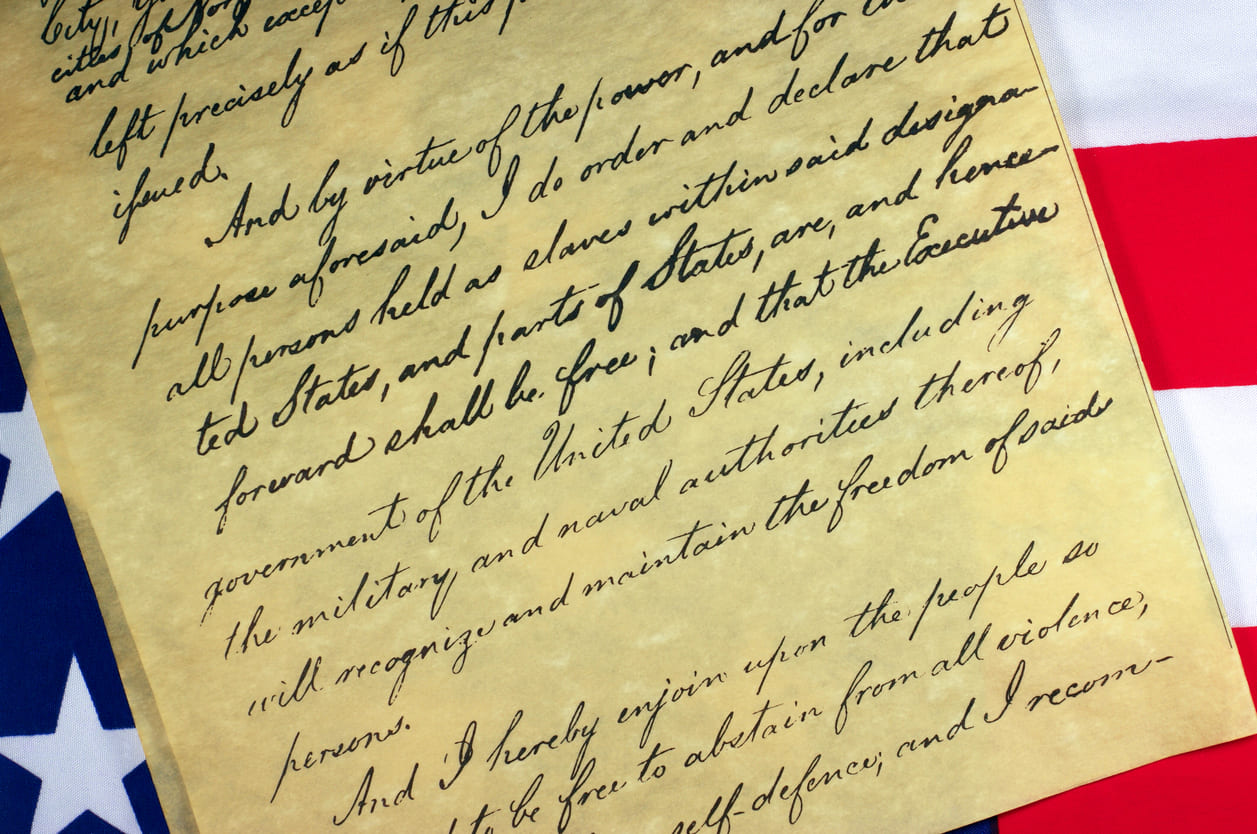 City,
cities of Nor
and which except
left precisely as if this
issued.
And by virtue of the power, and for
purpose aforesaid, I do order and declare that
all persons held as slaves within said designa-
ted States, and parts of States, are, and hence-
forward shall be free; and that the Executive
government of the United States, including
the military and naval authorities thereof,
will recognize and maintain the freedom of said
persons.
And I hereby enjoin upon the people so
to be free to abstain from all violence,
self-defence; and I recom-